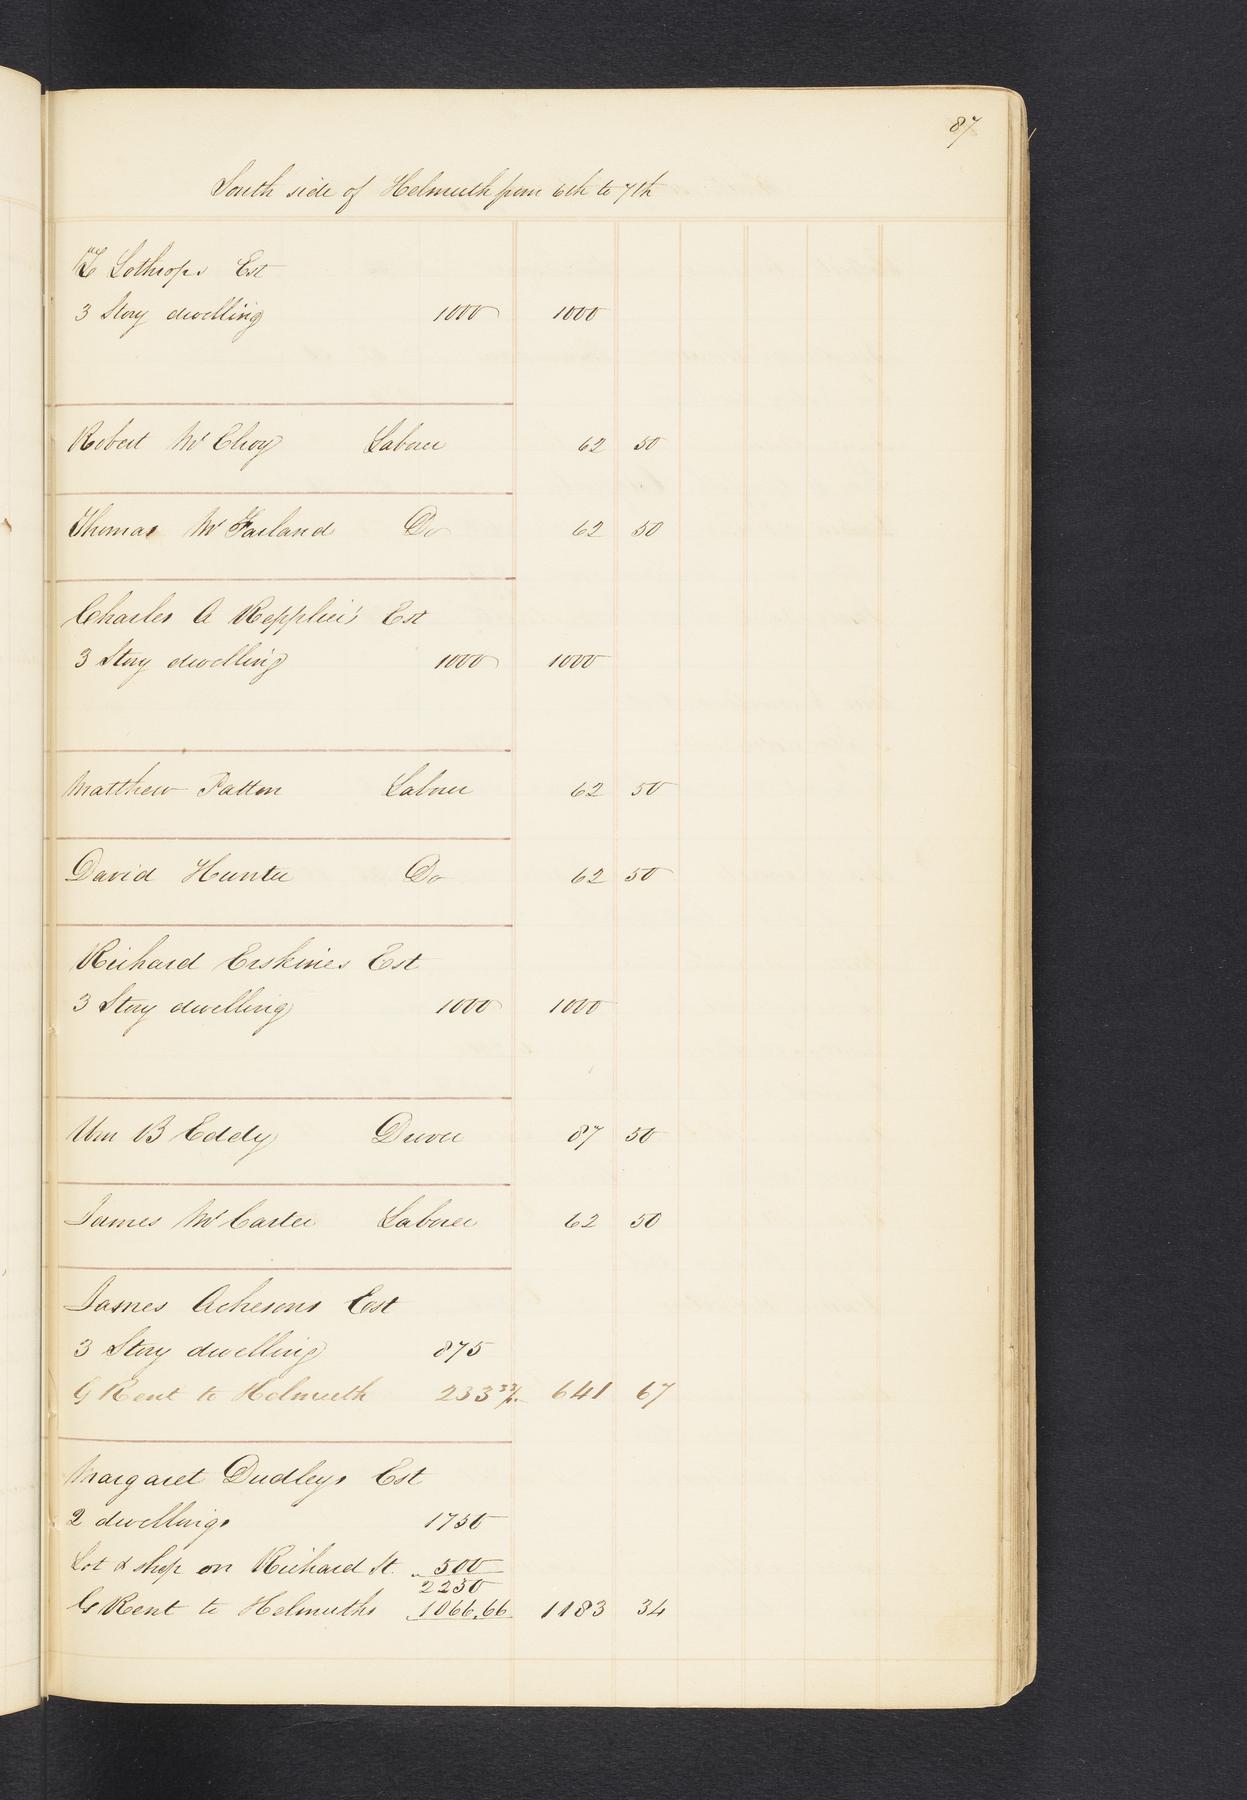 87
South side of Helmuth from 6th to 7th
Lothrops Est
3 Story dwelling 1000 1000
Robert McElroy Laborer 62 50
Thomas McFarland Do 62 50
Charles A Repplier's Est
3 Story dwelling 1000 1000
Matthew Patton Laborer 62 50
David Hunter Do 62 50
Richard Erskines Est
3 Story dwelling 1000 1000
Wm B Eddy Driver 87 50
James McCarter Laborer 62 50
James Achesons Est
3 Story dwelling 875
G Rent to Helmuth 233 33/. 641 67
Margaret Dudleys Est
2 dwellings 1750
Lot & shop on Richard St. 500
2250
G Rent to Helmuths 1066,66 1183 34